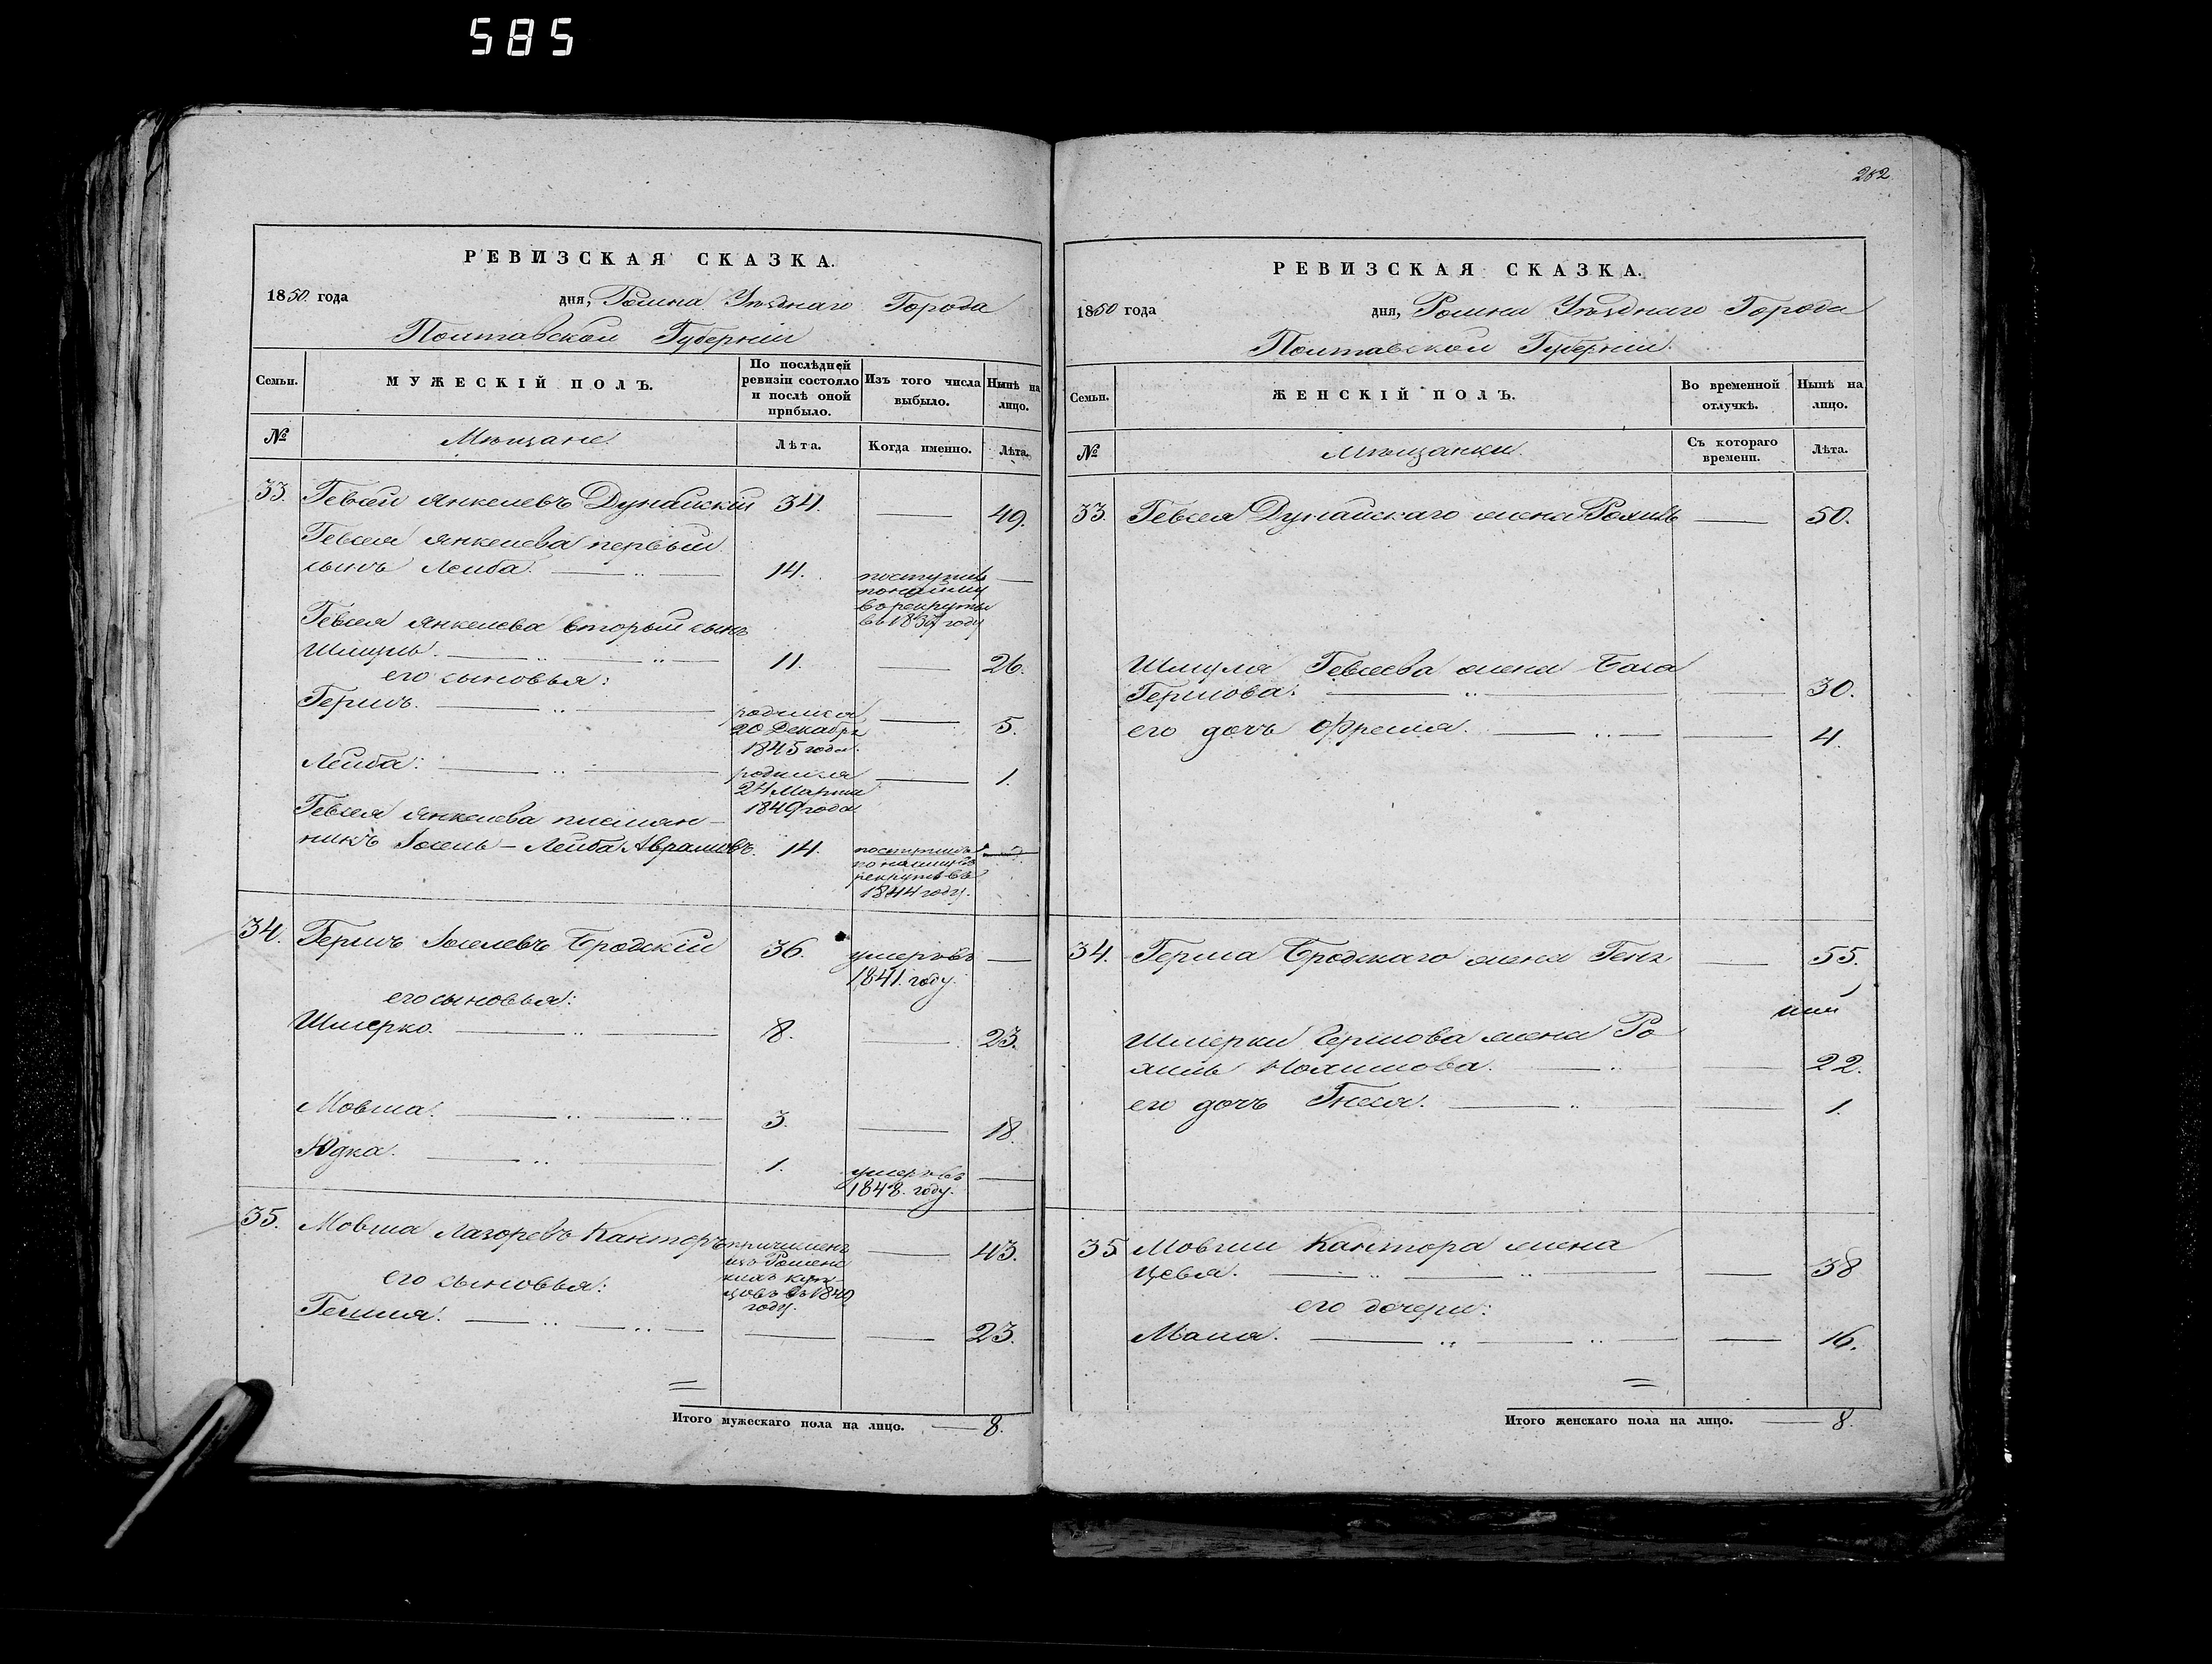 585
РЕВИЗСКАЯ СКАЗКА.
1850. года дня, Ромна Уѣзднаго Города
Полтавской Губерніи
Семьи.
МУЖЕСКІЙ ПОЛЪ.
По послѣдней ревизіи состояло и послѣ оной прибыло.
Изъ того числа выбыло.
Нынѣ на лицо.
№
Мѣщане.
Лѣта.
Когда именно.
Лѣта.
33. Гевсей Янкелевъ Дунайскій 34. — 49.
Гевсея Янкелева первый
сынъ Лейба. 14. поступилъ —
по найму
в рекруты
въ 1837 году
Гевсея Янкелева вторый сынъ
Шмуль. 11. — 26.
его сыновья:
Гершъ. родился — 5.
20 Декабря
1845 года.
Лейба: родился — 1.
24 Марта
1849 года
Гевсея Янкелева племян-
никъ Іосель-Лейба Аврамовъ. 14. поступилъ —
по найму въ
рекруты въ
1844 году.
34. Гершъ Іоселевъ Бродскій 36. умеръ въ —
1841. году.
его сыновья:
Шмерко. 8. — 23.
Мовша. 3. — 18.
Юдка. 1. умеръ въ —
1848. году.
35. Мовша Лазоревъ Канторъ причисленъ — 43.
изъ Роменс
кихъ куп-
цовъ въ 1849
году.
его сыновья:
Гешия. — — 23.
Итого мужескаго пола на лицо. — 8.
282
РЕВИЗСКАЯ СКАЗКА.
1850 года дня, Ромна Уѣзднаго Города
Полтавской Губерніи.
Семьи.
ЖЕНСКІЙ ПОЛЪ.
Во временной отлучкѣ.
Нынѣ на лицо.
№
Мѣщанки.
Съ котораго времени.
Лѣта.
33. Гевсея Дунайскаго жена Рохиль — 50.
Шмуля Гевсеева жена Бася
Гершова: — 30.
его дочь Фрейда. — 4.
34. Герша Бродскаго жена Гена — 55.
Шмерки Гершова жена Ро
хиль Нохимова. — 22.
его дочь Гнеся. — 1.
35 Мовши Кантора жена
Цевья. — 38
его дочери:
Маша. — 16.
Итого женскаго пола на лицо. — 8.